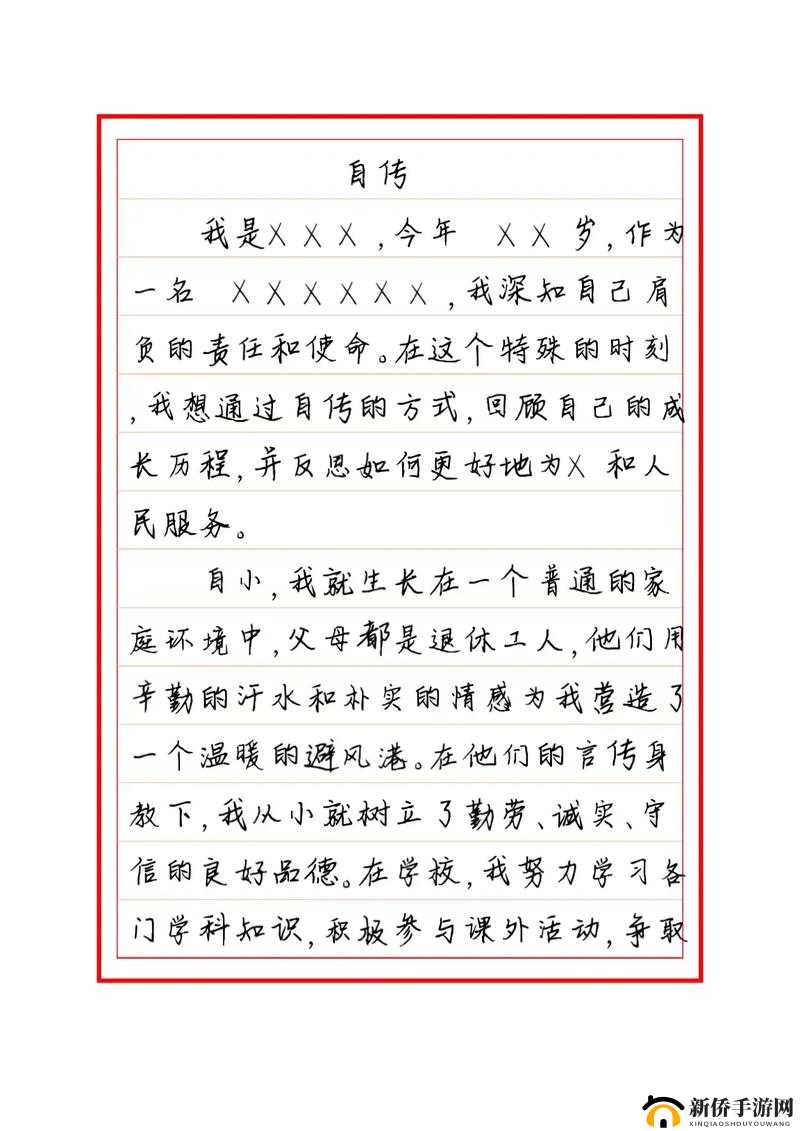 自传
我是XXX,今年 XX岁,作为
一名 XXXXXX,我深知自己肩
负的责任和使命。在这个特殊的时刻
,我想通过自传的方式,回顾自己的成
长历程,并反思如何更好地为X 和人
民服务。
自小,我就生长在一个普通的家
庭环境中,父母都是退休工人,他们用
辛勤的汗水和朴实的情感为我营造了
一个温暖的避风港。在他们的言传身
教下,我从小就树立了勤劳、诚实、守
信的良好品德。在学校,我努力学习各
门学科知识,积极参与课外活动,争取
新侨手游网
XINQIAOSHOUYOUWANG